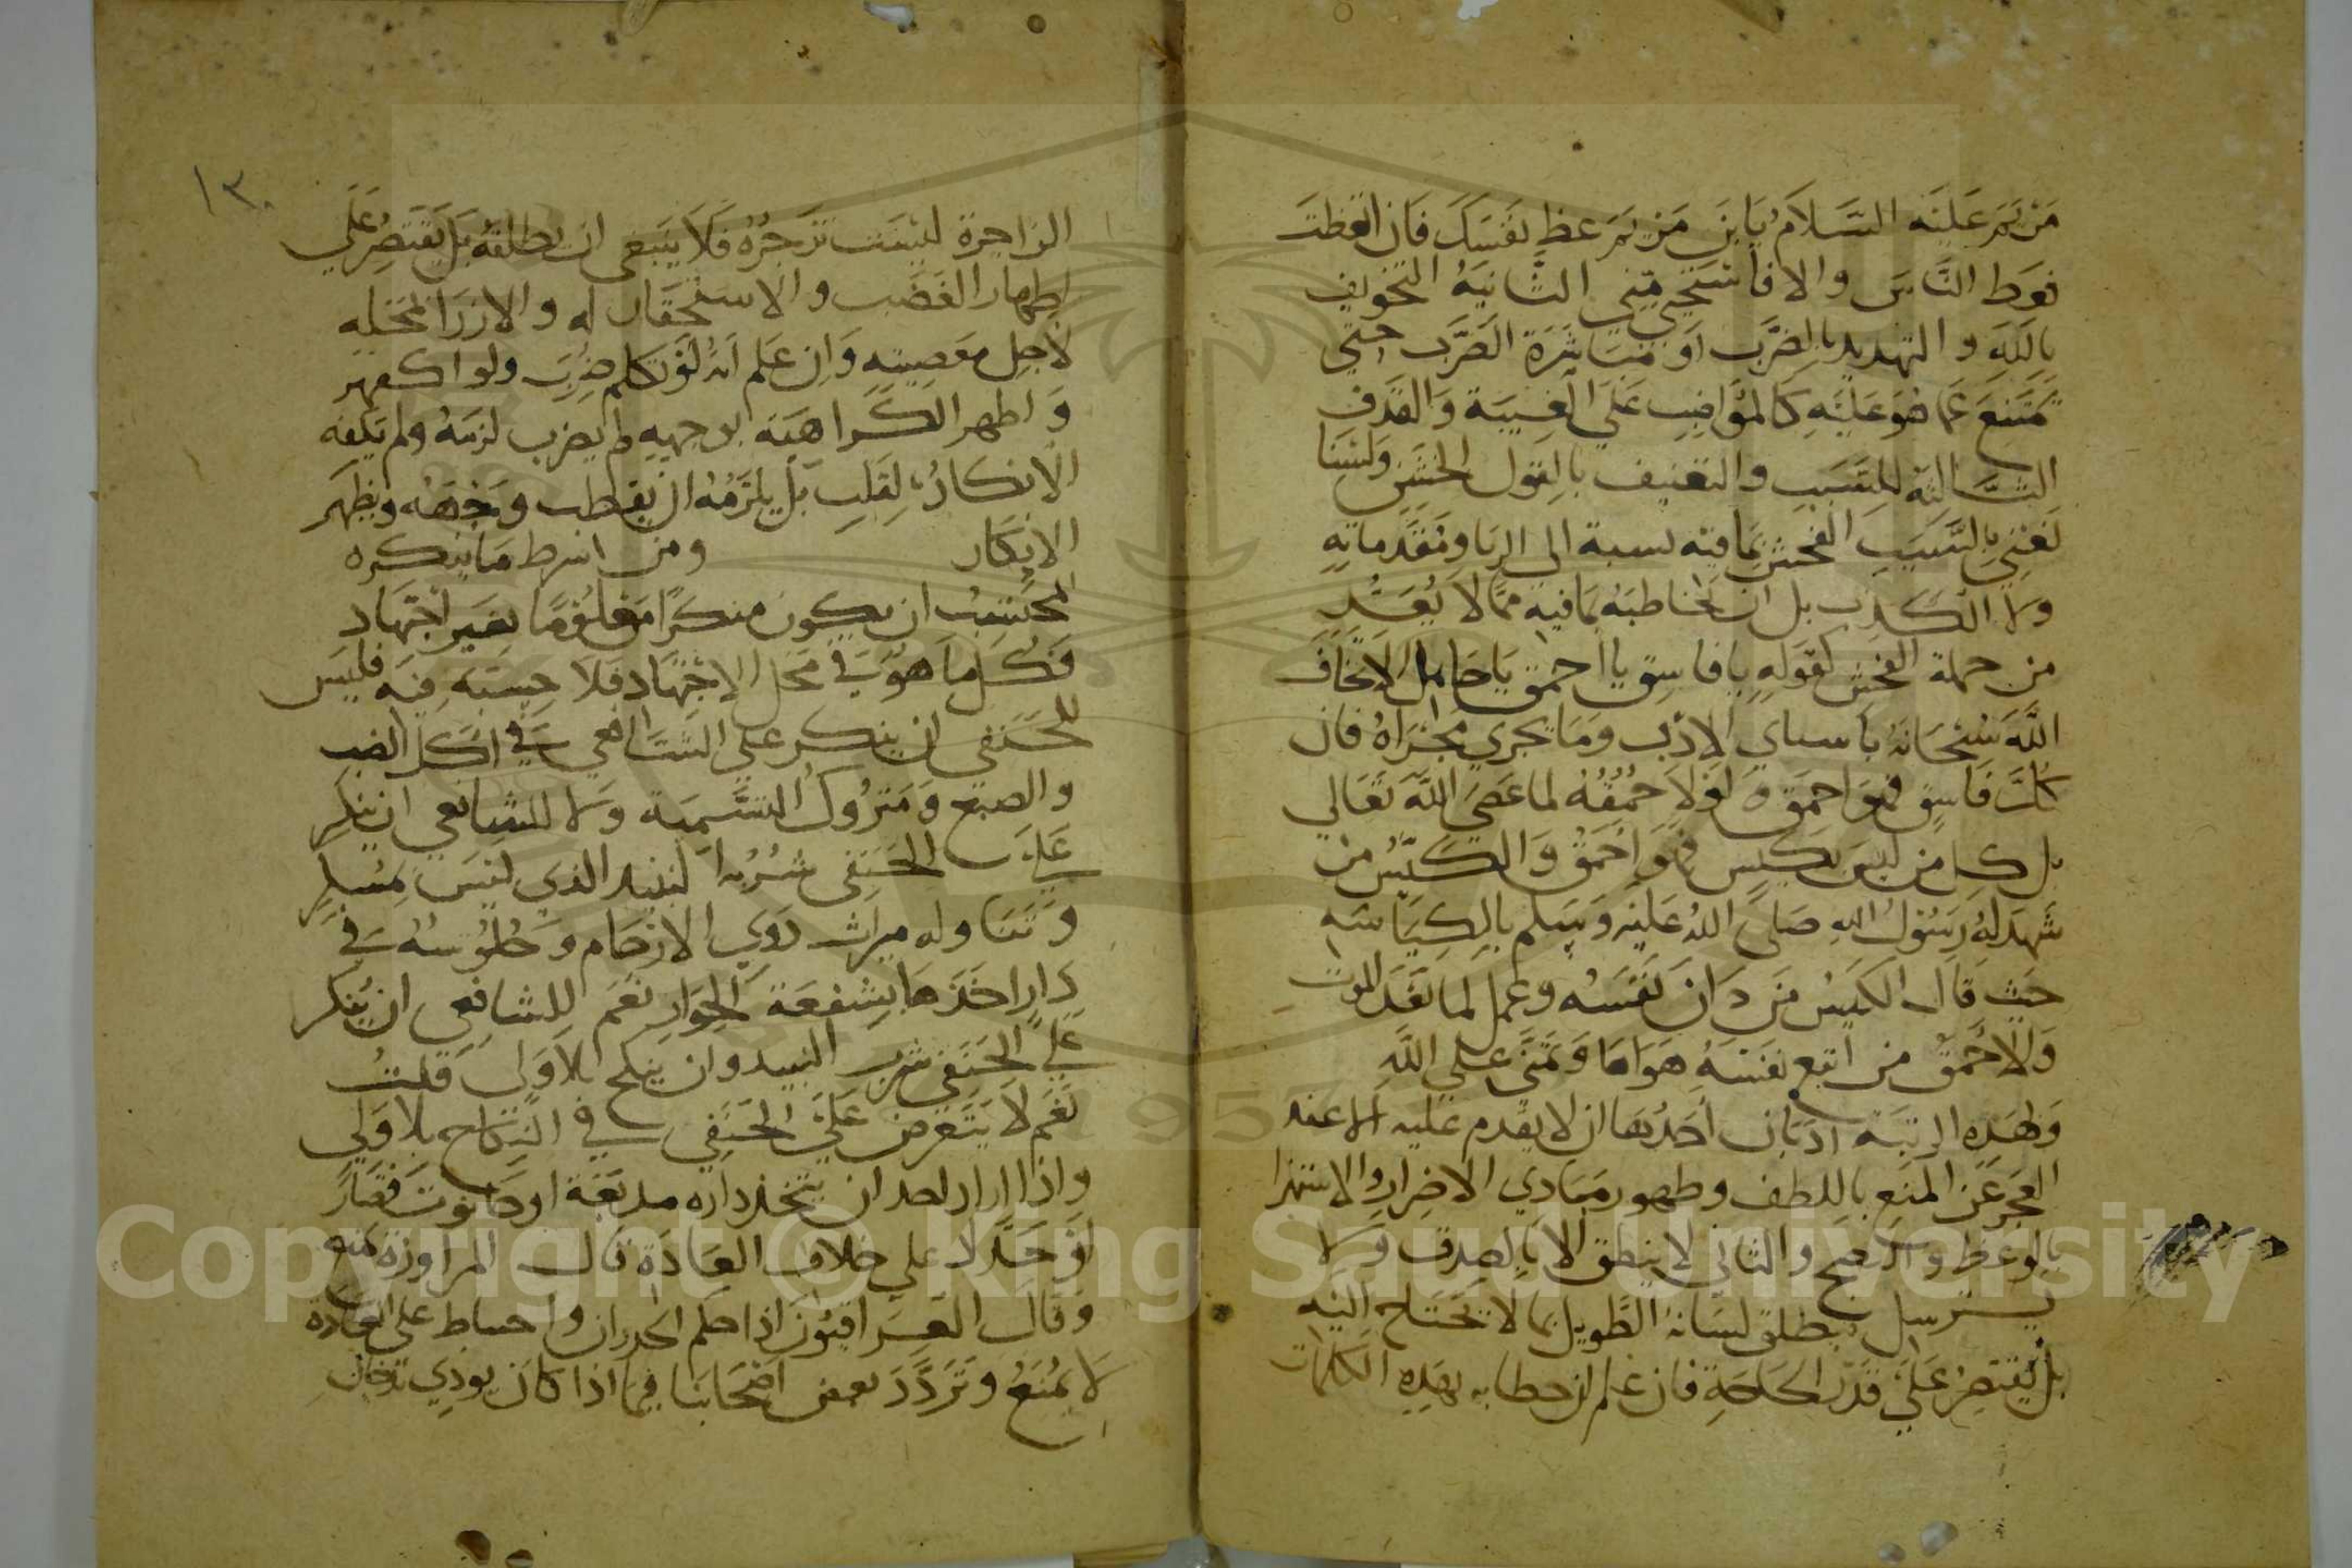 مريم عليه السلام يا بن مريم عظ نفسك فان اتعظت
فعظ الناس والا فاستحي مني الثانية التخويف
بالله والتهديد بالضرب او مباشرة الضرب حتي
يمتنع عما هو عليه كالمواضب علي الغيبة والقذف
الثالثة للسبب والتعنيف بالقول الخشن ولسنا
نعني بالسبب الفحش بما فيه نسبة الى الزنا ومقدماته
ولا الكذب بل ان يخاطبه بما فيه مما لا يعد
من جملة الفحش كقوله يا فاسق يا احمق يا جاهل الا تخاف
الله سبحانه يا سياي الادب وما يجري مجراه فان
كل فاسق فهو احمق ولولا حمقه لما عصى الله تعالي
بل كل من ليس بكيس فهو احمق والكيس من
شهد له رسول الله صلى الله عليه وسلم بالكياسه
حيث قال الكيس من دان نفسه وعمل لما بعد الموت
والاحمق من اتبع نفسه هواها وتمنى علي الله
ولهذه الرتبة ادبان احدهما ان لا يقدم عليه الا عند
العجز عن المنع باللطف وظهور مبادي الاضرار والاستهزا
بالوعظ والنصح والثاني لا ينطق الا بالصدق ولا
يسترسل يطلق لسانه الطويل بما لا تحتاج اليه
بل يقتصر على قدر الحاجة فان علم ان خطابه بهذه الكلمات
١٣٠
الزاجرة ليست تزجره فلا ينبغي ان يطلقه بل يقتصر علي
اظهار الغضب والاستحقار له والازرا بمحله
لاجل معصيته وان علم انه لو تكلم ضرب ولو اكفهر
واظهر الكراهية بوجهه لم يضرب لزمه ولم يكفه
الانكار بالقلب بل يلزمه ان يقطب وجهه ويظهر
الانكار ومن اشرط ما ينكره
المحتسب ان يكون منكرا معلوما بغير اجتهاد
فكل ما هو في محل الاجتهاد فلا حسبة فيه فليس
للحنفي ان ينكر علي الشافعي في اكل الضب
والضبع ومتروك التسمية ولا للشافعي ان ينكر
على الحنفي شربه لنبيذ الذي ليس بمسكر
وتناوله ميراث ذوي الارحام وجلوسه في
دار اخذها بشفعة الجوار نعم للشافعي ان ينكر
علي الحنفي شرب النبيذ وان ينكح بلا ولى قلت
نعم لا يتعرض علي الحنفي في النكاح بلا ولي
واذا اراد احد ان يتخذ داره مدبغة او حانوت قصار
او حداد علي خلاف العادة قال المراوزة يمنع
وقال العراقيون اذا حكم الجدران واحتاط على العادة
لا يمنع وتردد بعض اصحابنا فيما اذا كان يوذي بدخان
Copyright © King Saud University
1957